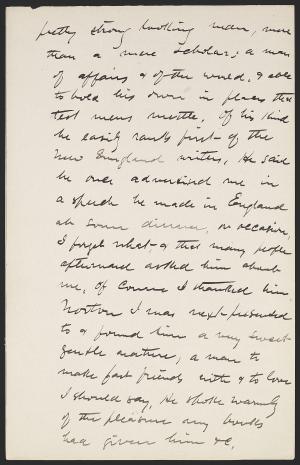 pretty strong looking man, more
than a mere scholar; a man
of affairs & of the world, & able
to hold his own in places that
test mens mettle. Of his kind
he easily ranks first of the
New England writers. He said
he once advertised me in
a speech he made in England
at some dinner, or occasion,
I forget what, & that many people
afterward asked him about
me. Of course I thanked him.
Norton I was next presented
to & found him a very sweet
gentle nature, a man to
make fast friends with & to love
I should say. He spoke warmly
of the pleasure my books
had given him &c.